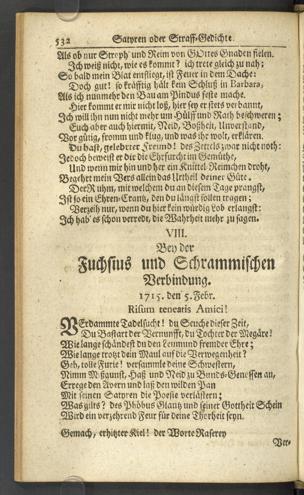 532 Satyren oder Straff-Gedichte.
Als ob nur Stroph' und Reim von GOttes Gnaden fielen.
Ich weiß nicht, wie es kommt? ich trete gleich zu nah;
So bald mein Blat entfliegt, ist Feuer in dem Dache:
Doch gut! so kräfftig hält kein Schluß in Barbara,
Als ich nunmehr den Bau am Pindus feste mache.
Hier kommt er mir nicht loß, hier sey er stets verbannt,
Ich will ihn nun nicht mehr um Hülff und Rath beschweren;
Euch aber auch hiermit, Neid, Boßheit, Unverstand,
Vor gütig, fromm und klug, und was ihr wolt, erklären.
Du hast, gelehrter Freund! des Zettels zwar nicht noth:
Jedoch beweist er dir die Ehrfurcht im Gemüthe,
Und wenn mir hin und her ein Knüttel-Reimchen droht,
Begehrt mein Vers allein das Urtheil deiner Güte.
Der Ruhm, mit welchem du an diesem Tage prangst,
Ist so ein Ehren-Crantz, den du längst sollen tragen;
Verzeih nur, wenn du hier kein würdig Lob erlangst:
Ich hab' es schon verredt, die Wahrheit mehr zu sagen.
VIII.
Bey der
Fuchsius und Schrammischen
Verbindung.
1715. den 5. Febr.
Risum teneatis Amici!
VErdammte Tadelsucht! du Seuche dieser Zeit,
Du Bastart der Vernunfft, du Tochter der Megäre!
Wie lange schändest du den Leumund fremder Ehre;
Wie lange trotzt dein Maul auf die Verwegenheit?
Geh, tolle Furie! versammle deine Schwestern,
Nimm Mißgunst, Haß und Neid zu Bunds-Genossen an,
Errege den Avern und laß den wilden Pan
Mit seinen Satyren die Poesie verlästern;
Was gilts? des Phöbus Glantz und seiner Gottheit Schein
Wird ein verzehrend Feur für deine Thorheit seyn.
Gemach, erhitzter Kiel! der Worte Raserey
Ver-